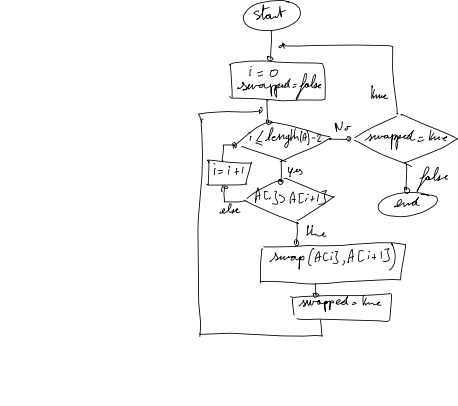 start
i = 0
swapped = false
true
i ≤ length(A)-2
No
swapped = true
yes
false
i = i+1
A[i]>A[i+1]
end
else
true
swap(A[i], A[i+1])
swapped = true